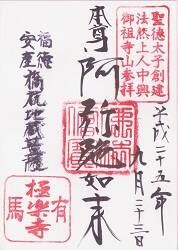 聖徳太子創建
法然上人中興
御祖寺山参拝
平成二十五年
九月二十三日
本尊 阿弥陀如来
福徳
安産 橋杭地蔵菩薩
有馬
極楽寺